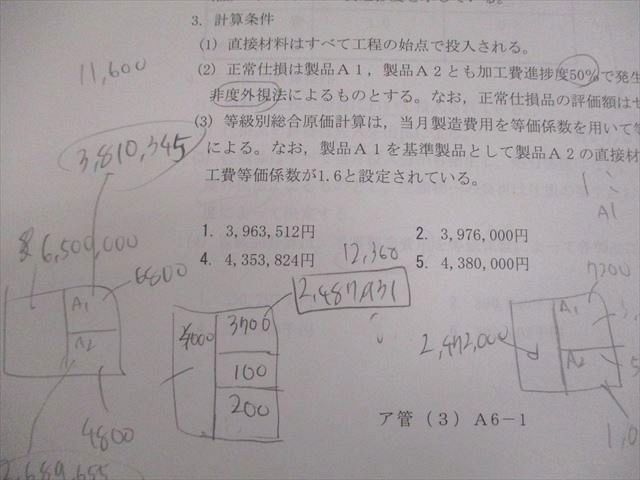 3. 計算条件
(1) 直接材料はすべて工程の始点で投入される。
(2) 正常仕損は製品A1，製品A2とも加工費進捗度50%で発生
非度外視法によるものとする。なお，正常仕損品の評価額はゼ
(3) 等級別総合原価計算は，当月製造費用を等価係数を用いて等
による。なお，製品A1を基準製品として製品A2の直接材
工費等価係数が1.6と設定されている。
1. 3,963,512円
2. 3,976,000円
4. 4,353,824円
5. 4,380,000円
ア管 (3) A6-1
11,600
3,810,345
6,500,000
6800
A1
A2
4800
2,689,655
12,360
2,487,931
3700
100
200
A1
7200
2,472,000
A1
A2